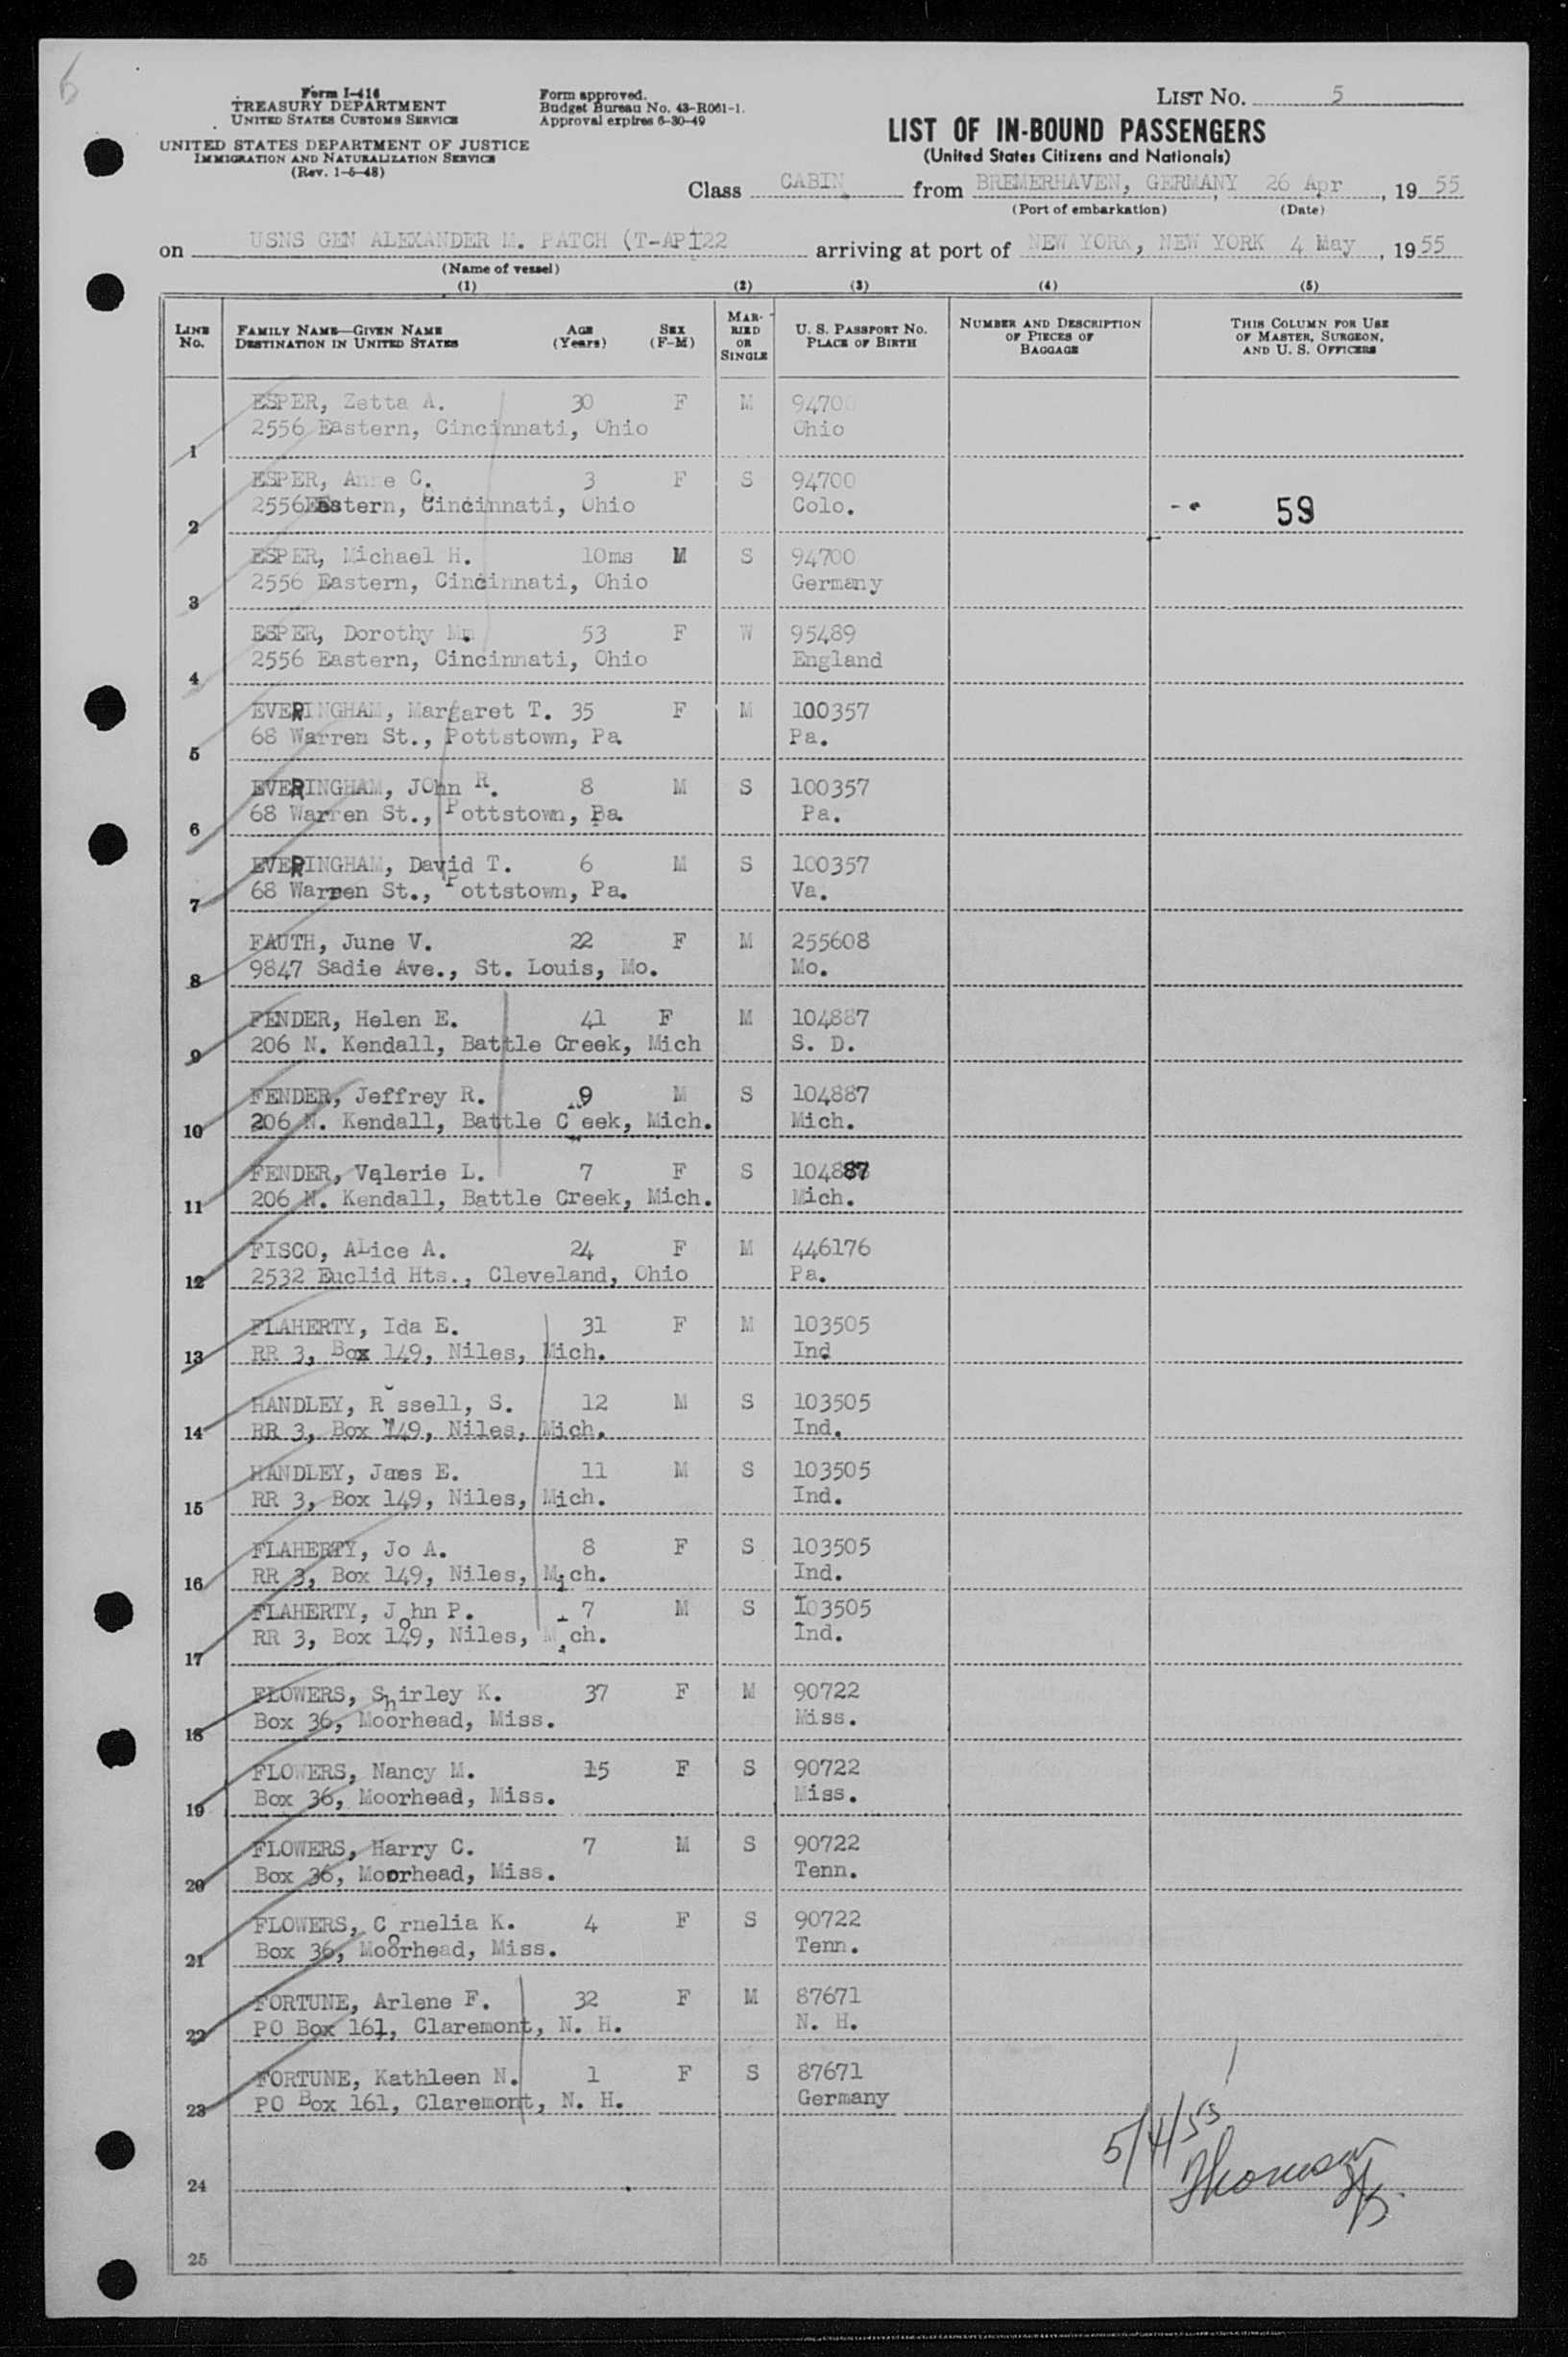 6
Form I-416
TREASURY DEPARTMENT
UNITED STATES CUSTOMS SERVICE
UNITED STATES DEPARTMENT OF JUSTICE
IMMIGRATION AND NATURALIZATION SERVICE
(Rev. 1-5-48)
Form approved.
Budget Bureau No. 43-R061-1.
Approval expires 6-30-49
LIST NO. 5
LIST OF IN-BOUND PASSENGERS
(United States Citizens and Nationals)
Class CABIN from BREMERHAVEN, GERMANY, 26 Apr, 19 55
(Port of embarkation) (Date)
on USNS GEN ALEXANDER M. PATCH (T-AP122 arriving at port of NEW YORK, NEW YORK 4 May, 19 55
(Name of vessel)
(1) (2) (3) (4) (5)
LINE NO. FAMILY NAME—GIVEN NAME DESTINATION IN UNITED STATES AGE (Years) SEX (F-M) MARRIED OR SINGLE U. S. PASSPORT NO. PLACE OF BIRTH NUMBER AND DESCRIPTION OF PIECES OF BAGGAGE THIS COLUMN FOR USE OF MASTER, SURGEON, AND U. S. OFFICERS
ESPER, Zetta A. 30 F M 94700
1 2556 Eastern, Cincinnati, Ohio Ohio
ESPER, Anne C. 3 F S 94700
2 2556 Eastern, Cincinnati, Ohio Colo. 59
ESPER, Michael H. 10ms M S 94700
3 2556 Eastern, Cincinnati, Ohio Germany
ESPER, Dorothy M. 53 F W 95489
4 2556 Eastern, Cincinnati, Ohio England
EVERINGHAM, Margaret T. 35 F M 100357
5 68 Warren St., Pottstown, Pa Pa.
EVERINGHAM, JOhn R. 8 M S 100357
6 68 Warren St., Pottstown, Pa. Pa.
EVERINGHAM, David T. 6 M S 100357
7 68 Warren St., Pottstown, Pa. Va.
FAUTH, June V. 22 F M 255608
8 9847 Sadie Ave., St. Louis, Mo. Mo.
FENDER, Helen E. 41 F M 104887
9 206 N. Kendall, Battle Creek, Mich S. D.
FENDER, Jeffrey R. 9 M S 104887
10 206 N. Kendall, Battle C eek, Mich. Mich.
FENDER, Valerie L. 7 F S 104887
11 206 N. Kendall, Battle Creek, Mich. Mich.
FISCO, ALice A. 24 F M 446176
12 2532 Euclid Hts., Cleveland, Ohio Pa.
FLAHERTY, Ida E. 31 F M 103505
13 RR 3, Box 149, Niles, Mich. Ind
HANDLEY, Russell, S. 12 M S 103505
14 RR 3, Box 149, Niles, Mich. Ind.
HANDLEY, Jaes E. 11 M S 103505
15 RR 3, Box 149, Niles, Mich. Ind.
FLAHERTY, Jo A. 8 F S 103505
16 RR 3, Box 149, Niles, Mich. Ind.
FLAHERTY, John P. 7 M S 103505
17 RR 3, Box 149, Niles, Mich. Ind.
FLOWERS, Shirley K. 37 F M 90722
18 Box 36, Moorhead, Miss. Miss.
FLOWERS, Nancy M. 15 F S 90722
19 Box 36, Moorhead, Miss. Miss.
FLOWERS, Harry C. 7 M S 90722
20 Box 36, Moorhead, Miss. Tenn.
FLOWERS, Cornelia K. 4 F S 90722
21 Box 36, Moorhead, Miss. Tenn.
FORTUNE, Arlene F. 32 F M 87671
22 PO Box 161, Claremont, N. H. N. H.
FORTUNE, Kathleen N. 1 F S 87671
23 PO Box 161, Claremont, N. H. Germany
5/4/55
24 Thomson
25